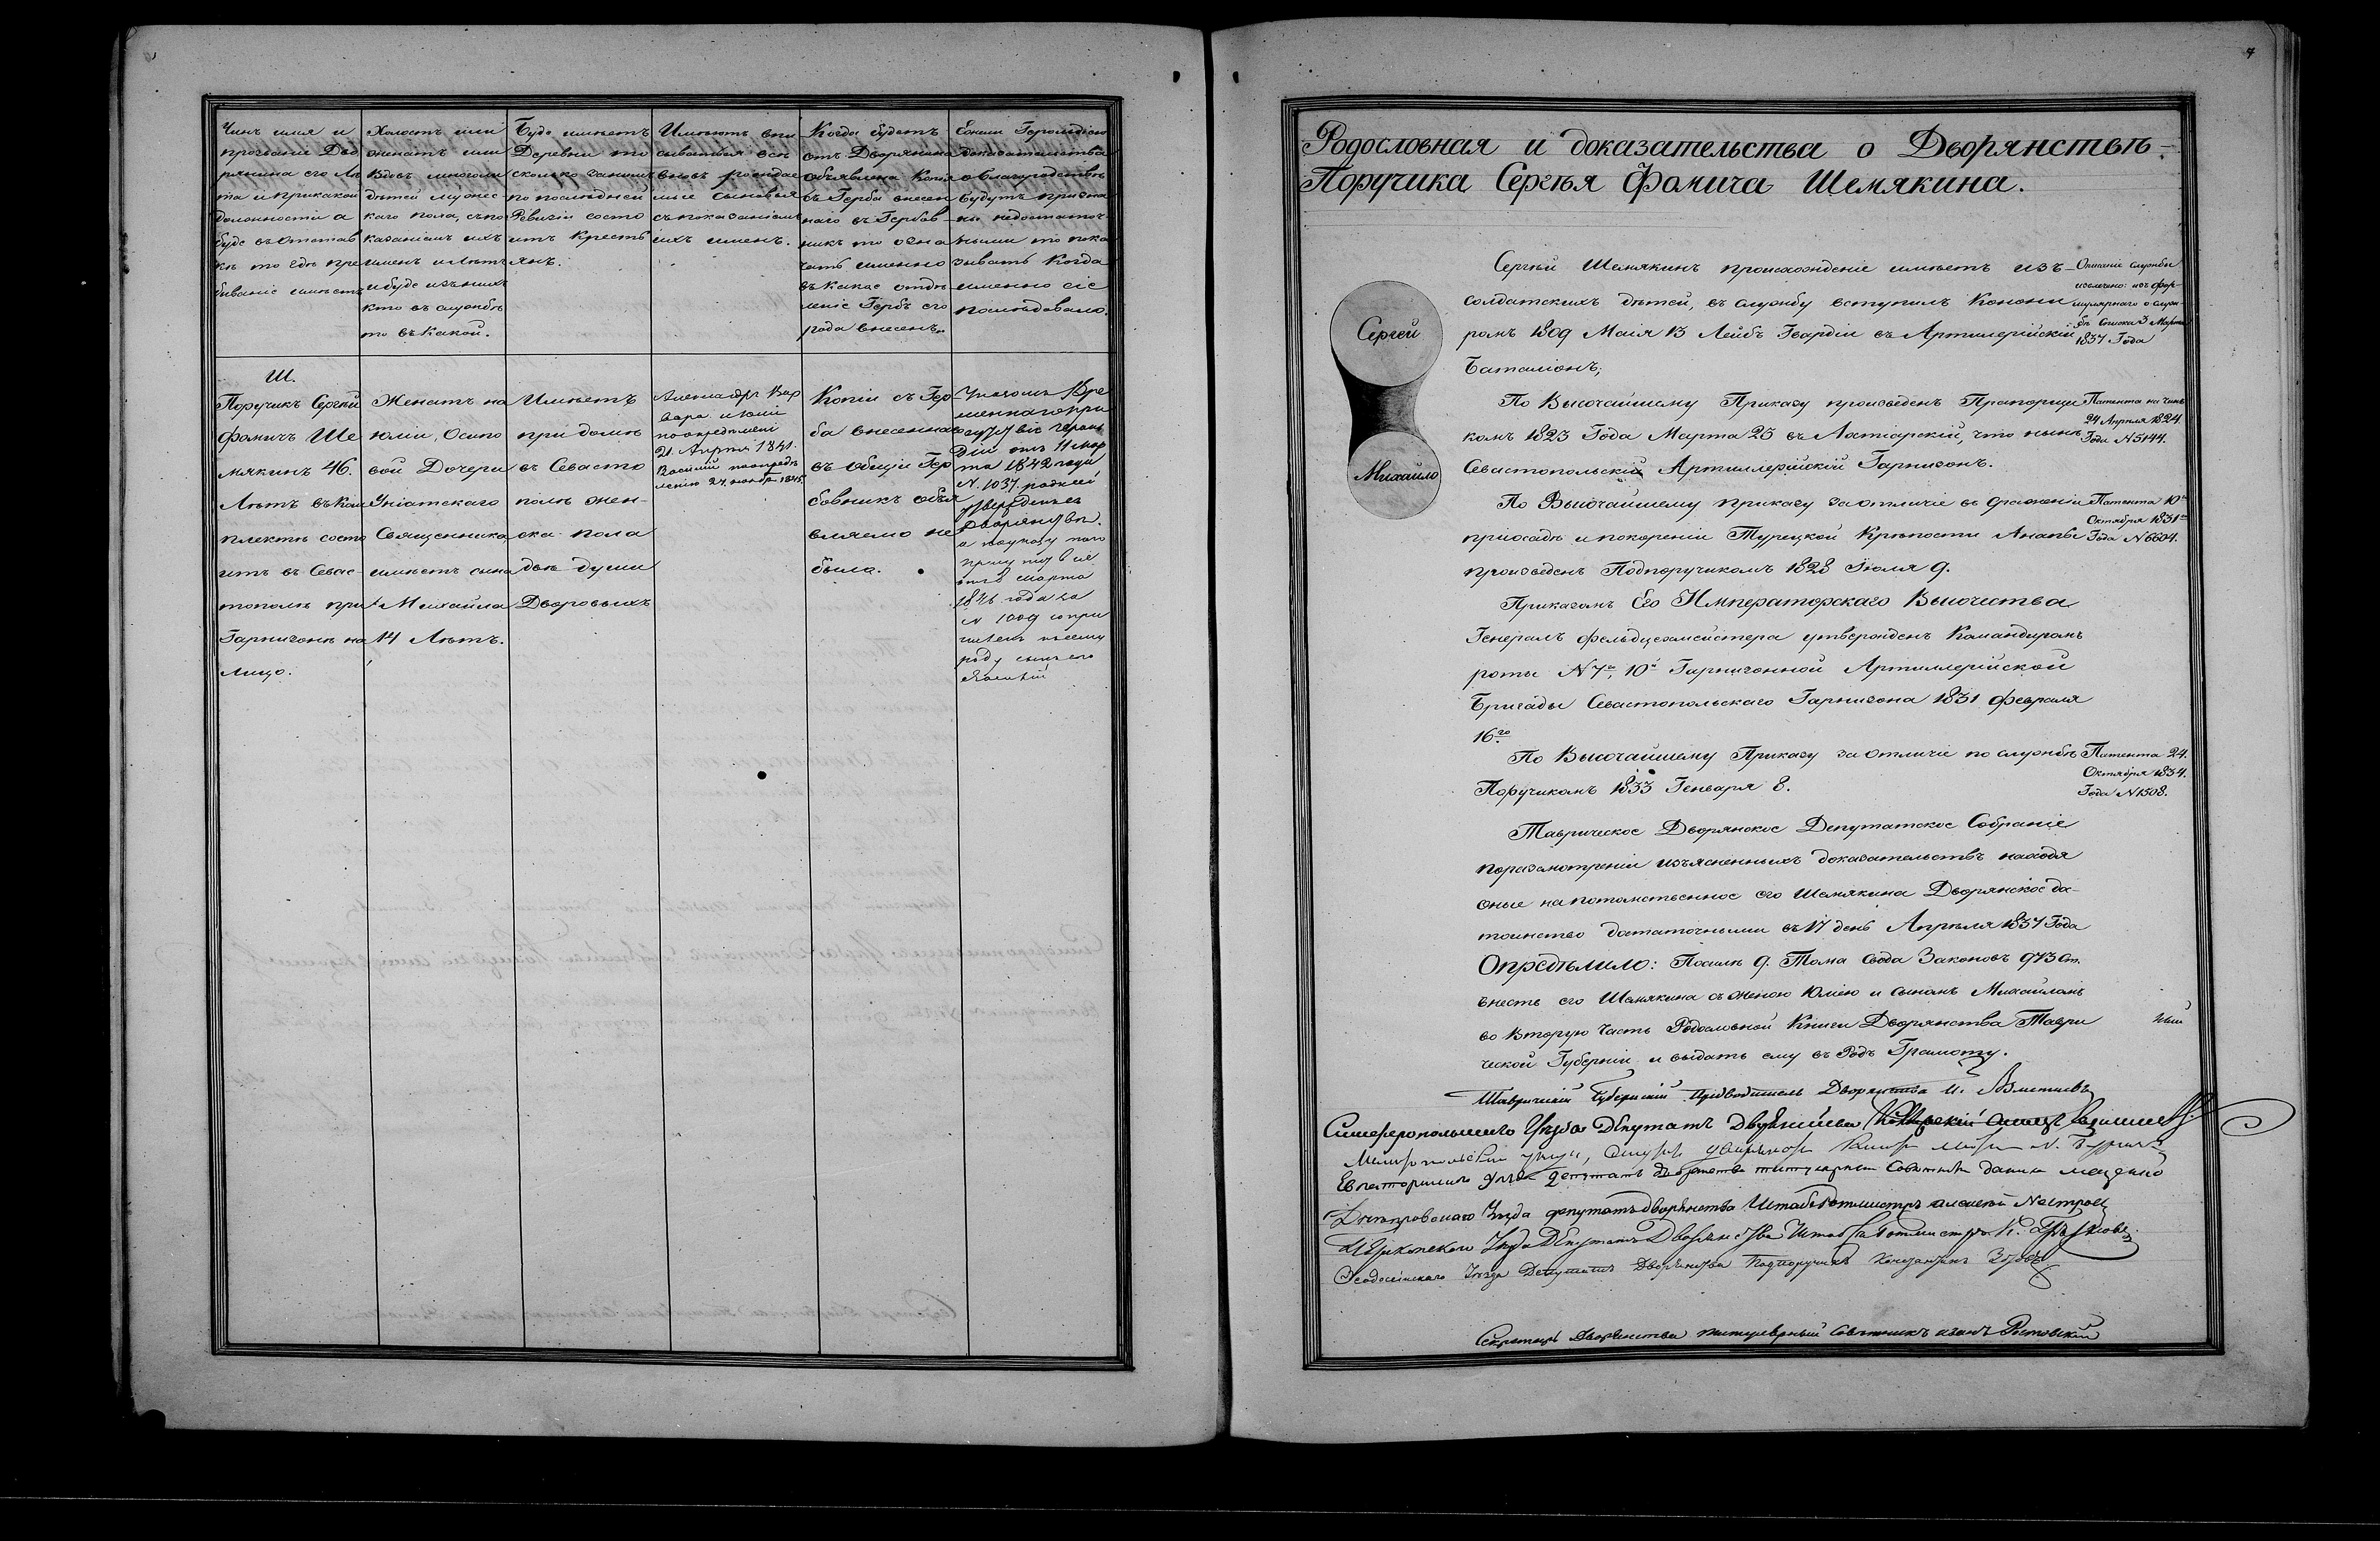 Чинъ имя и
прозваніе Дво
рянина его лѣ
та и при какой
должности а
буде въ отстав
кѣ то гдѣ пре
бываніе имѣетъ
Холостъ или
женатъ или
вдовъ многоли
дѣтей мужес
каго пола, съпо
казаніемъ ихъ
именъ илѣтъ
ибуде изънихъ
кто въ службѣ
то въ какой.
Буде имѣетъ
Деревни то
сколько заними
по последней
Ревизіи состо
итъ Кресть
янъ.
Имѣютъ впи
сываться всѣ
вновь рождае
мые сыновья
съпоказаніемъ
ихъ именъ.
Когда будетъ
отъ Дворянина
объявлена Копія
съ Герба внесен
наго въ Гербов
никъ то озна
чать именно
въ какое отдѣ
леніе Гербъ его
рода внесенъ.
Ежели Герольдіею
доказательства
о благородствѣ
будутъ призна
ны недостаточ
ными то пока
зывать когда
именно сіе
послѣдовало.
Ш.
Поручикъ Сергѣй
Фомичъ Ше
мякинъ 46.
Лѣтъ въ Ком
плектѣ состо
итъ въ Севас
тополѣ при
Гарнизонѣ на
лицо.
Женатъ на
Юліи, Осипо
вой Дочери
Уніатскаго
Священника
имѣетъ сына
Михайла
14 Лѣтъ.
Имѣетъ
при домѣ
въ Севасто
полѣ жен-
ска пола
двѣ души
Дворовыхъ
Александръ Вар
вара и Юлія
поопредѣленію
21. Апрѣля 1841.
Василій поопредѣ
ленію 24. ноября 1845.
Копіи съ Гер
ба внесеннаго
въ Общій Гер
бовникъ объя
вляемо не
было.
Указомъ Вре
меннаго при
сутствіе Героль
діи отъ 11 мар
та 1842 года
N. 1037. родъ сей
утвержденъ въ
Дворянствѣ.
а поуказу того
отъ 8 марта
1846 года за
N 1009 сопри
численъ къ сему
роду сынъ его
Василій
4
Родословная и доказательства о Дворянствѣ
Поручика Сергѣя Фомича Шемякина.
Сергей
Михайло
Сергѣй Шемякинъ происхожденіе имѣетъ изъ
солдатскихъ дѣтей, въ службу вступилъ Канони
ромъ 1809 Маія 13 Лейбъ Гвардіи въ Артилерійскій
Баталіонъ;
Описаніе службы
извлечено: изъ фор-
мулярнаго о служ
бѣ Списка 3 Марта
1837 Года
По Высочайшему Приказу произведенъ Прапорщи
комъ 1823 Года Марта 25 въ Ахтіарскій, что нынѣ
Севастопольскій Артиллерійскій Гарнизонъ.
Патента на чинъ
24 Апрѣля 1824.
Года N 5144.
По Высочайшему приказу заотличіе въ сраженіи
приосадѣ и покореніи Турецкой Крѣпости Анапы
произведенъ Подпоручикомъ 1828 Іюля 9.
Патента 10го
Октября 1831го
Года N 6604.
Приказомъ Его Императорскаго Высочества
Генералъ фельдцехмейстера утвержденъ Командиромъ
роты N 7й, 10й Гарнизонной Артиллерійской
Бригады Севастопольскаго Гарнизона 1831 февраля
16го.
По Высочайшему Приказу за отличіе по службѣ
Поручикомъ 1833 Генваря 8.
Патента 24.
Октября 1834.
Года N 1508.
Таврическое Дворянское Депутатское Собраніе
поразсмотреніи изъясненныхъ доказательствъ находя
оные на потомственное его Шемякина Дворянское до-
тоинство достаточными въ 17 день Апрѣля 1837 Года
Опредѣлило: По силѣ 9. Тома Свода Законовъ 973 Ст.
внесть его Шемякина съ женою Юліею и сыномъ Михайломъ
во Вторую Часть Родословной Книги Дворянства Таври
ческой Губерніи и выдать ему въ Родъ Грамоту.
Таврическій Губернскій Предводитель Дворянства
Симферопольскаго Уѣзда Депутатъ Дворянства
Евпаторійскаго Уѣзда Депутатъ Дворянства титулярный Совѣтникъ
Днѣпровскаго Уѣзда депутатъ дворянства Штабсъ Ротмистръ Алексѣй
Перекопскаго Уѣзда Депутатъ Дворянства Штабсъ Ротмистръ
Ѳеодосійскаго Уѣзда Депутатъ Дворянства Подпоручикъ
Секретарь Дворянства титулярный Совѣтникъ